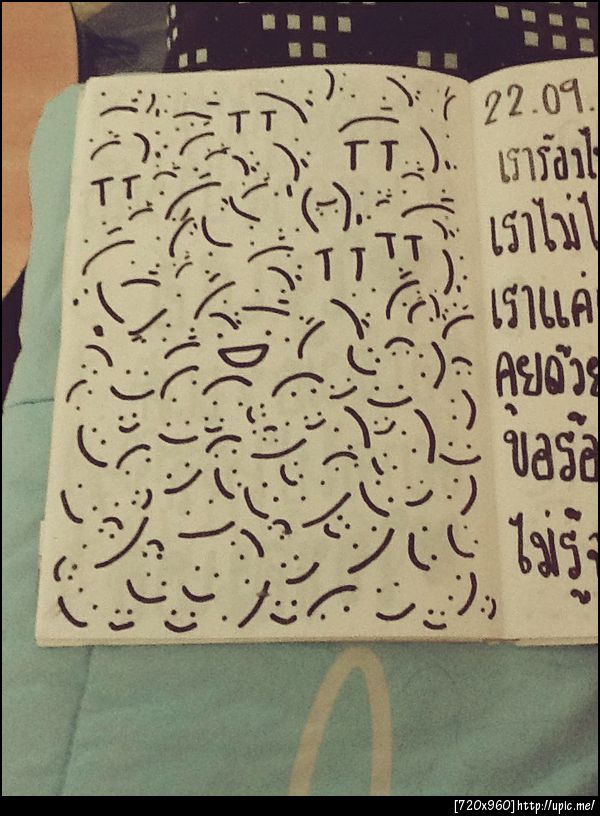 TT
TT
TT
TT TT
22.09.
เราร้องไ
เราไม่ไ
เราแค่
คุยด้วย
ขอร้อ
ไม่รู้
[720x960]http://upic.me/